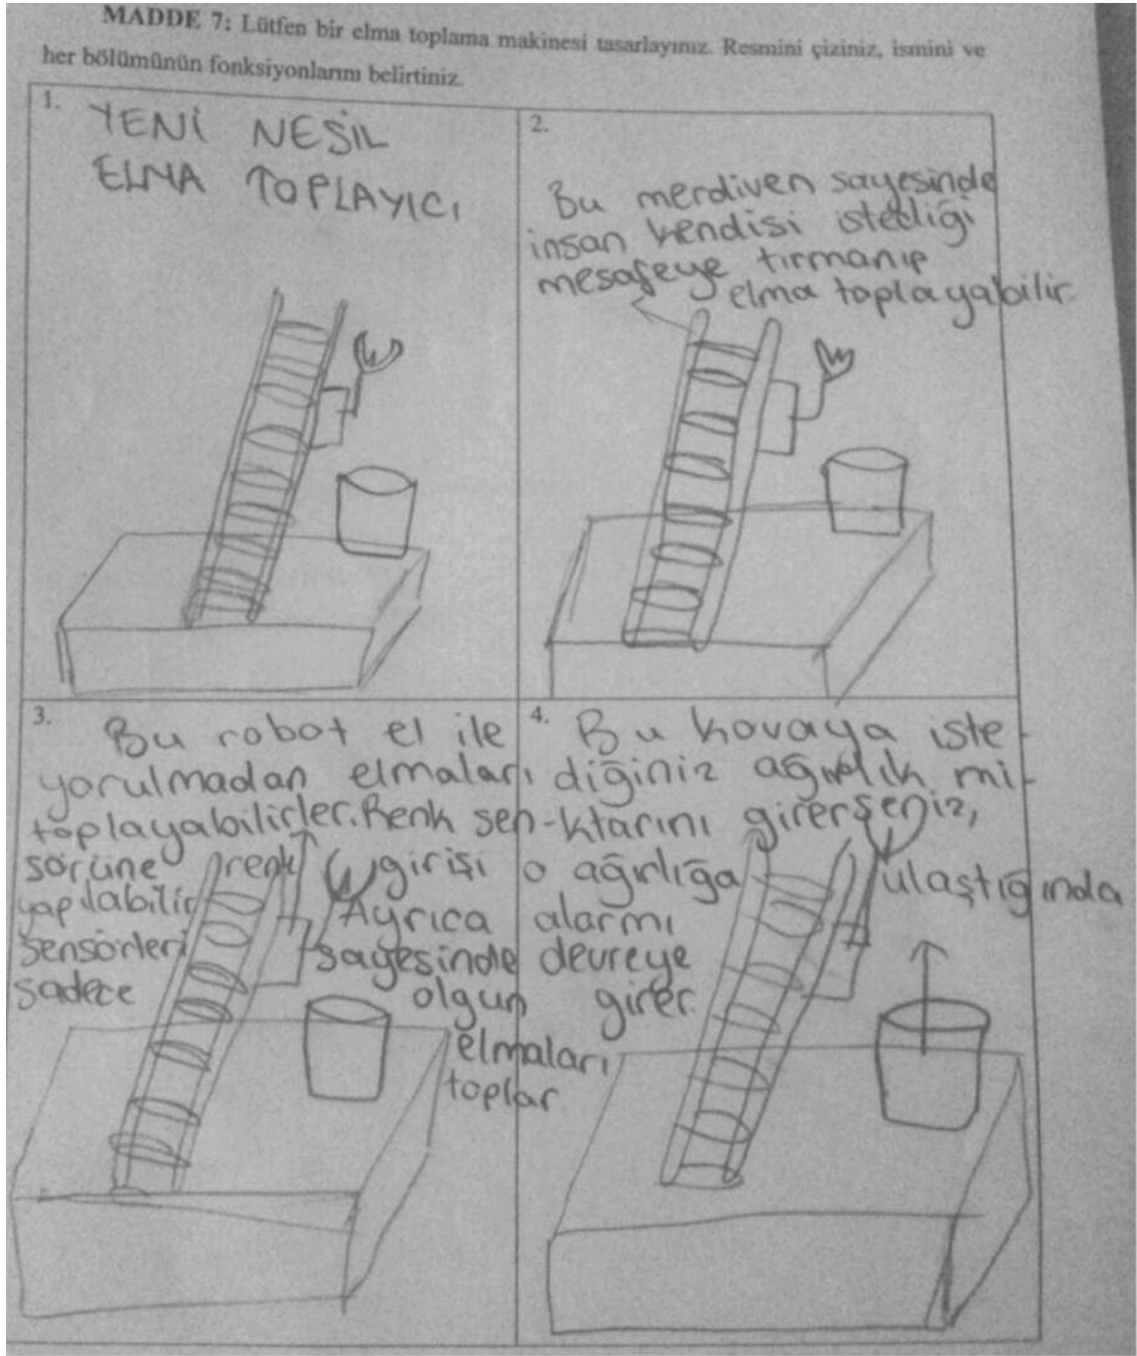 MADDE 7: Lütfen bir elma toplama makinesi tasarlayınız. Resmini çiziniz, ismini ve
her bölümünün fonksiyonlarını belirtiniz.
1.
YENİ NESİL
ELMA TOPLAYICI
2.
Bu merdiven sayesinde
insan kendisi istediği
mesafeye tırmanıp
elma toplayabilir.
3.
Bu robot el ile
yorulmadan elmaları
toplayabilirler. Renk sen-
sörüne renk girişi
yapılabilir Ayrıca
sensörleri sayesinde
sadece olgun
elmaları
toplar
4.
Bu kovaya iste-
diğiniz ağırlık mi-
ktarını girerseniz,
o ağırlığa ulaştığında
alarmı
devreye
girer.